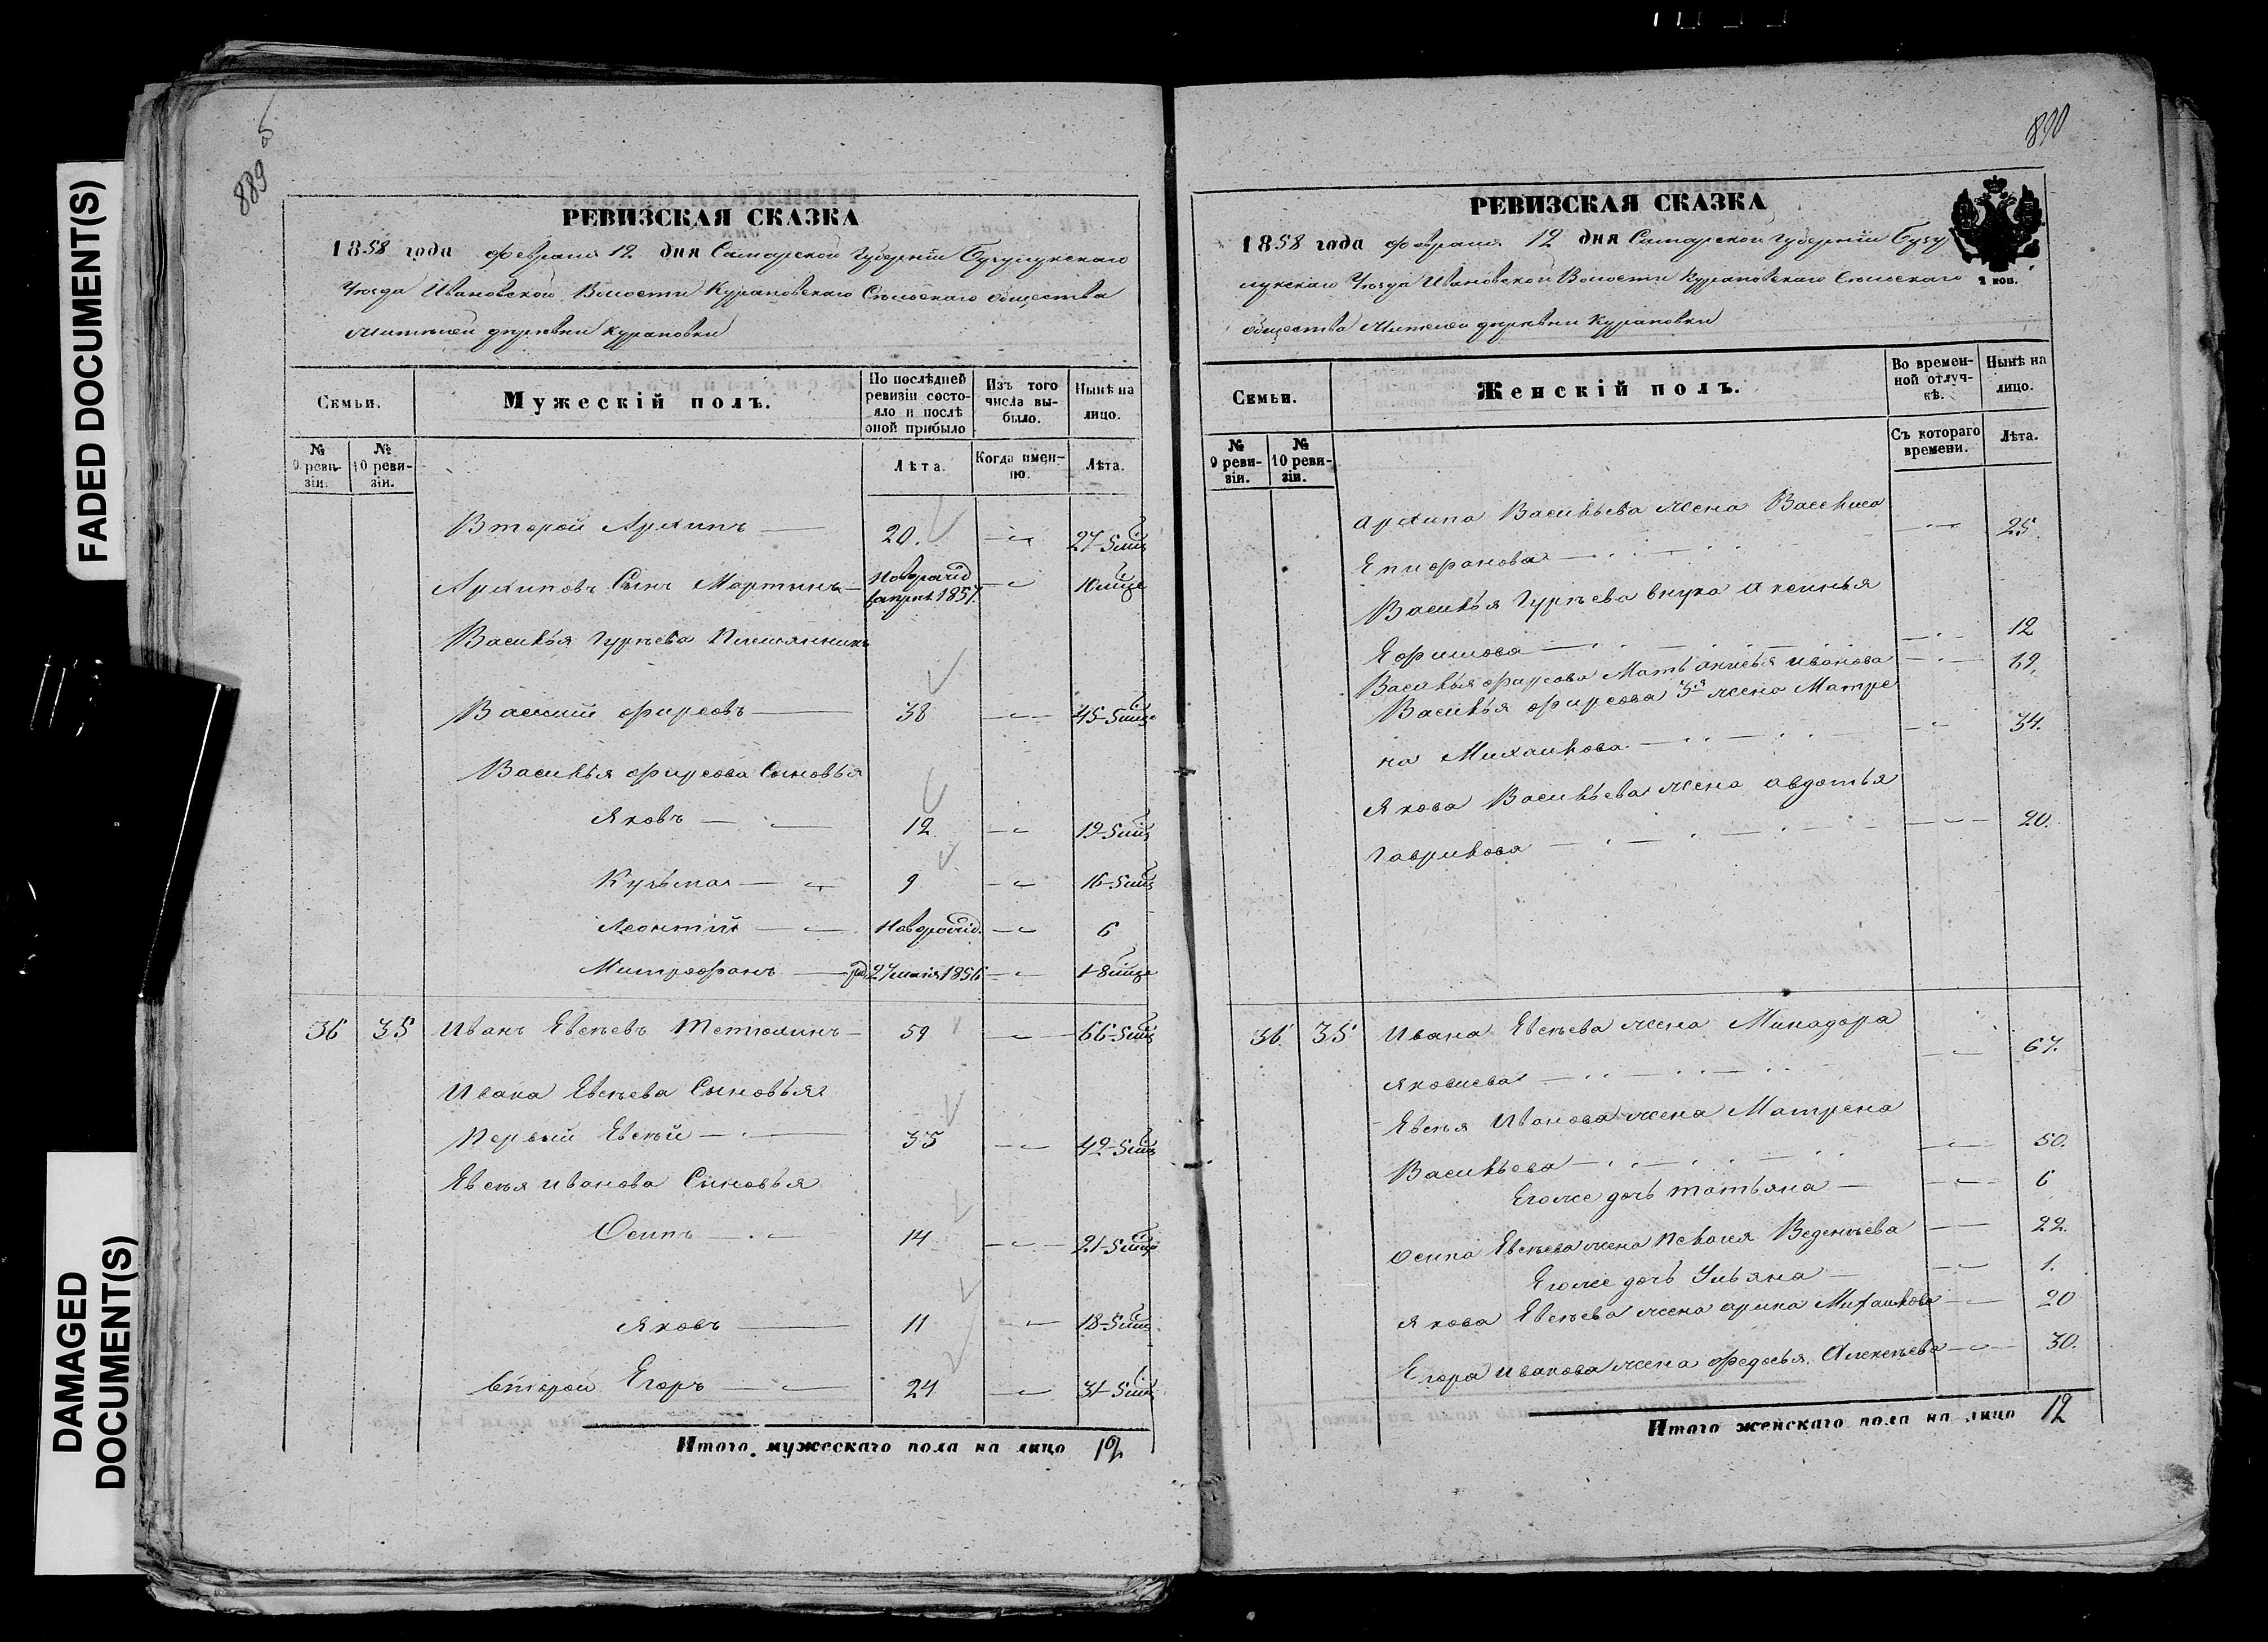 FADED DOCUMENT(S)
DAMAGED
DOCUMENT(S)
889 б
РЕВИЗСКАЯ СКАЗКА
1858 года февраля 12 дня Самарской Губерніи Бузулукскаго
Уѣзда Ивановской Волости Курановскаго Сельскаго Общества
деревни Курановки
Семьи.
Мужескій полъ.
По послѣдней ревизіи состояло и послѣ оной прибыло
Изъ того числа выбыло.
Нынѣ на лицо.
№ 9 ревизіи.
№ 10 ревизіи.
Лѣта.
Когда именно.
Лѣта.
Второй Архипъ 20. 27-5
Архиповъ Сынъ Мартынъ 1857. 10
Василья Гурьева Племянникъ
Василій Фирсовъ 38 45-5
Василья Фирсова Сыновья
Яковъ 12 19-5
Кузьма 9 16-5
Леонтій 6
Митрофанъ 1856 1-8
36 35 Иванъ Евсѣевъ Тетюхинъ 59 66-5
Ивана Евсѣева Сыновья
Первый Евсѣй 35 42-5
Евсѣя Иванова Сыновья
Осипъ 14 21-5
Яковъ 11 18-5
Второй Егоръ 24 31-5
Итого мужескаго пола на лицо 12
890
РЕВИЗСКАЯ СКАЗКА
1858 года февраля 12 дня Самарской Губерніи Бузу
лукскаго Уѣзда Ивановской Волости Курановскаго Сельскаго
общества деревни Курановки
2 коп.
Семьи.
Женскій полъ.
Во временной отлучкѣ.
Нынѣ на лицо.
№ 9 ревизіи.
№ 10 ревизіи.
Съ котораго времени.
Лѣта.
Архипа Васильева жена Васелиса
Епифанова 25.
Василья Гурьева внука Аксинья
Ефимова 12
Василья Фирсова Мать Анисья Иванова 69.
Василья Фирсова 3я жена Матре
на Михайлова 34.
Якова Васильева жена Авдотья
Гаврилова 20.
36. 35 Ивана Евсѣева жена Минадора
Яковлева 67.
Евсѣя Иванова жена Матрена
Васильева 50.
Егоже дочь Татьяна 6
Осипа Евсѣева жена Пелагея Веденѣева 22.
Егоже дочь Ульяна 1.
Якова Евсѣева жена Арина Михайлова 20
Егора Иванова жена Федосья Алексѣева 30.
Итого женскаго пола на лицо 12